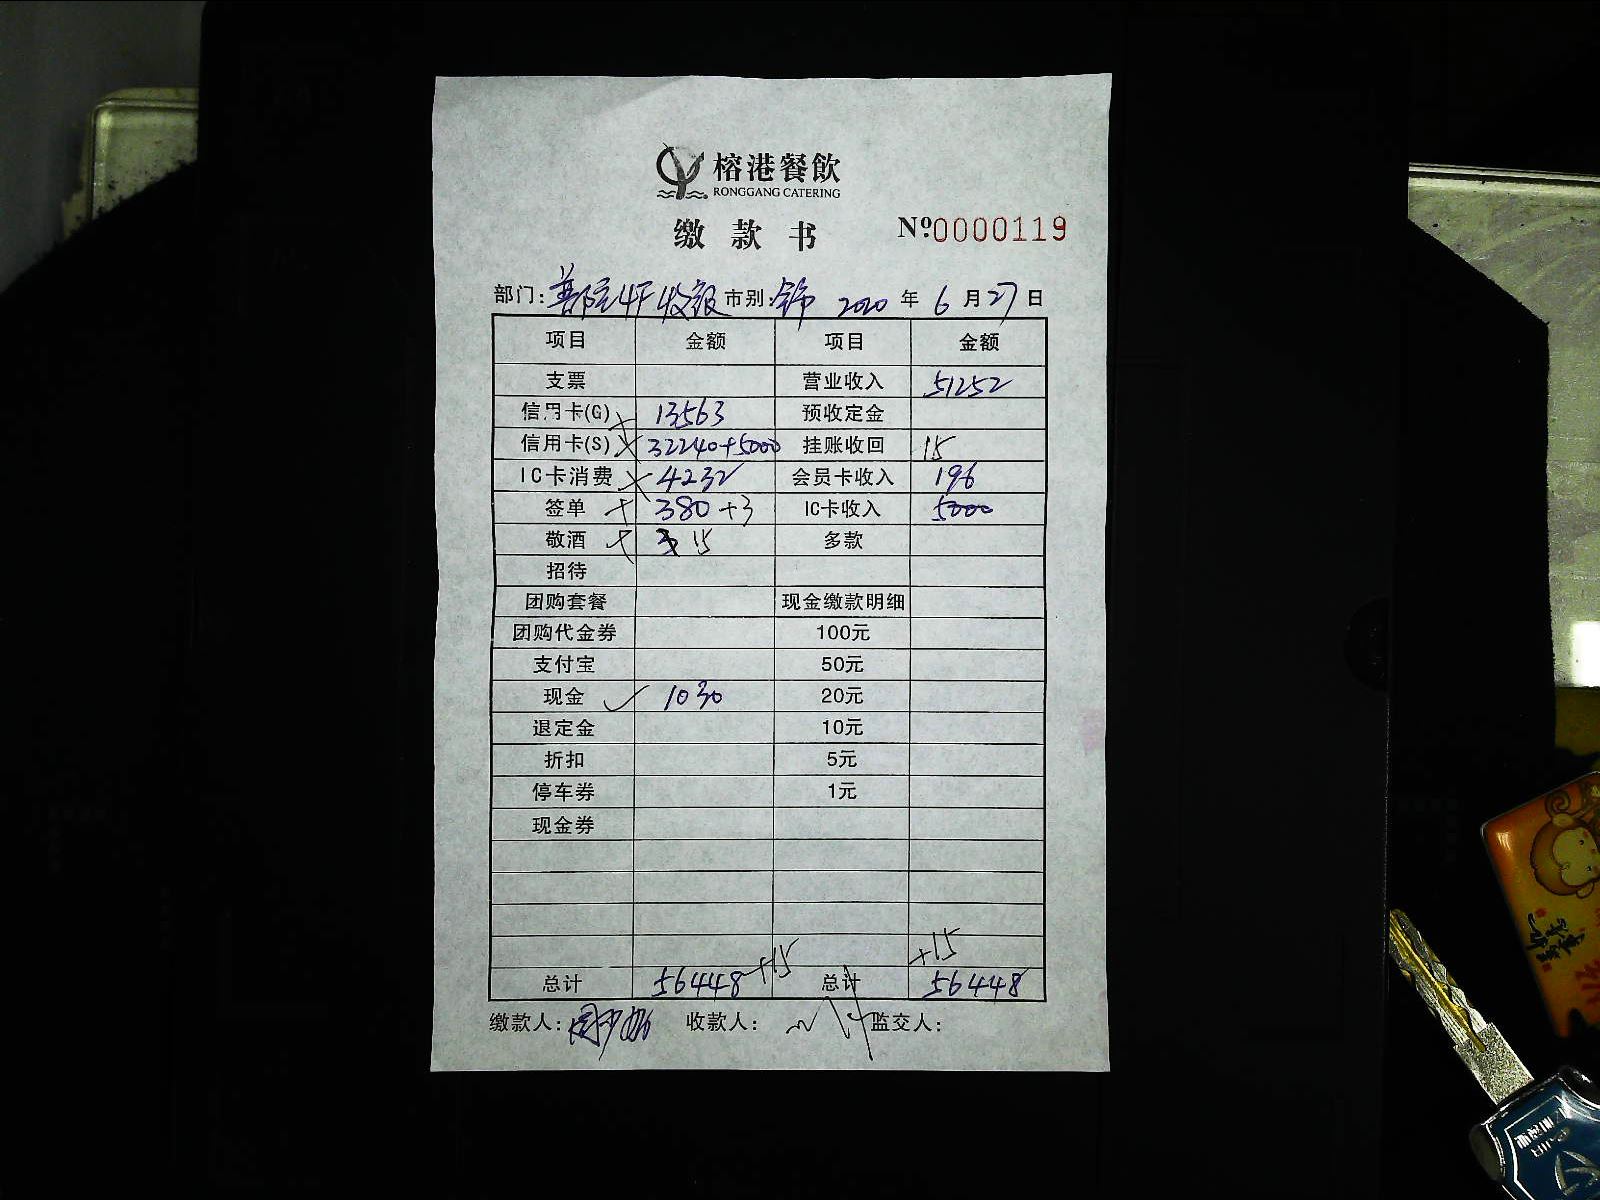 榕港餐飲
RONGGANG CATERING
缴款书 Nº0000119
部门: 4F收银 市别: 2020 年 6 月 27 日
项目 金额 项目 金额
支票 营业收入 51252
信用卡(G) 13563 预收定金
信用卡(S) 32240+5000 挂账收回 15
IC卡消费 4232 会员卡收入 196
签单 380+3 IC卡收入 5000
敬酒 15 多款
招待
团购套餐 现金缴款明细
团购代金券 100元
支付宝 50元
现金 1030 20元
退定金 10元
折扣 5元
停车券 1元
现金券
+15 +15
总计 56448 总计 56448
缴款人: 收款人: 监交人: